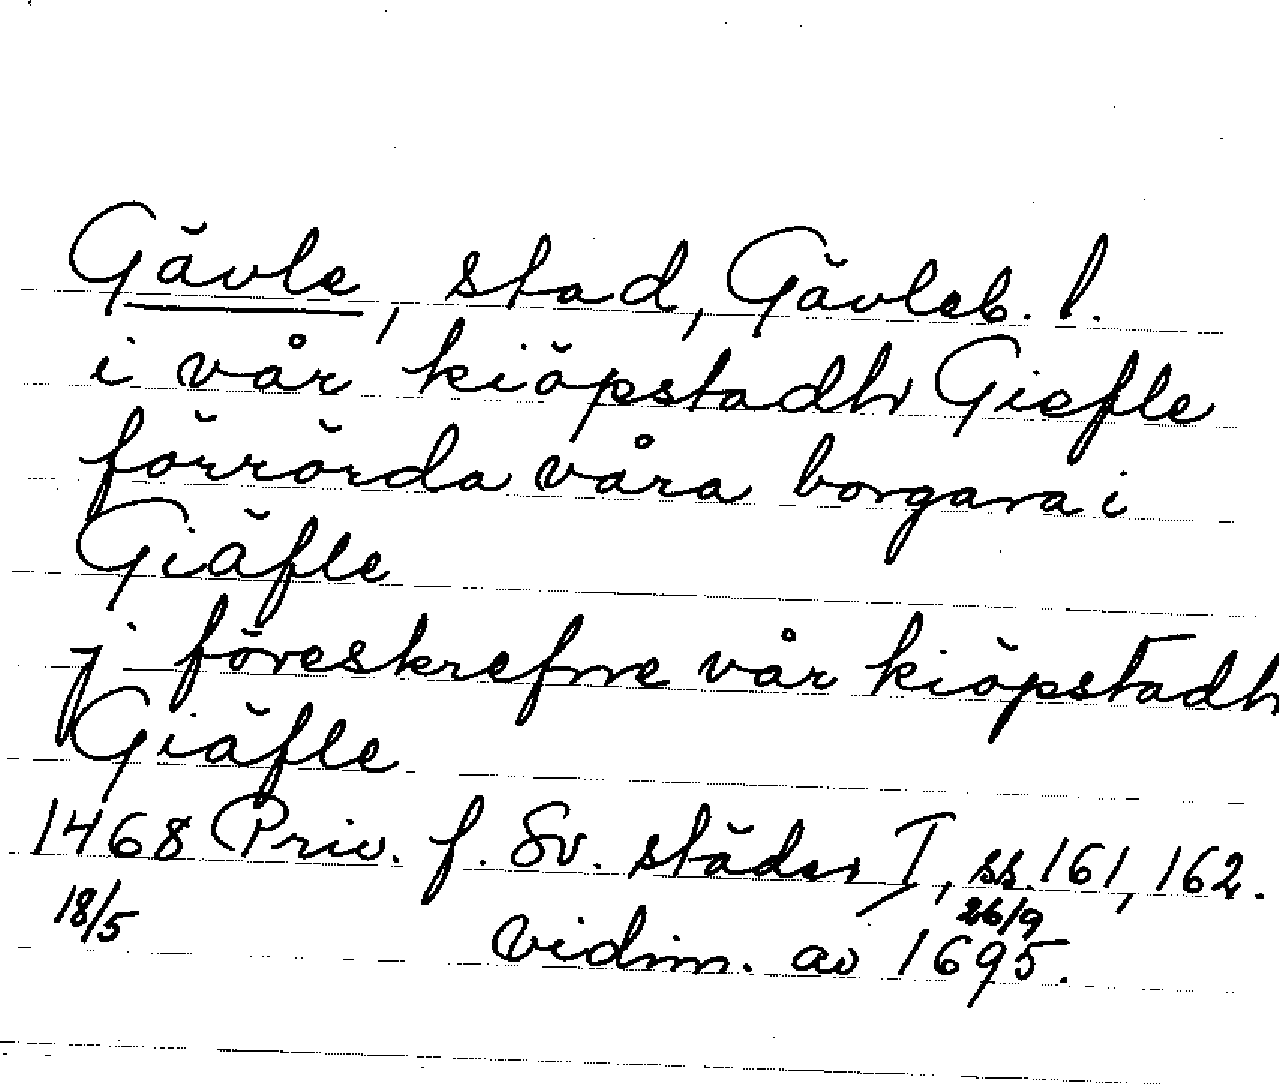 Gävle, stad, Gävleb. l.
i vår kiöpstadh Giefle
förrörda våra borgara i
Giäfle
j föreskrefne vår kiöpstadh
Giäfle
1468 Priv. f. Sv. städer I, ss. 161, 162.
18/5 vidim. av 26/9 1695.